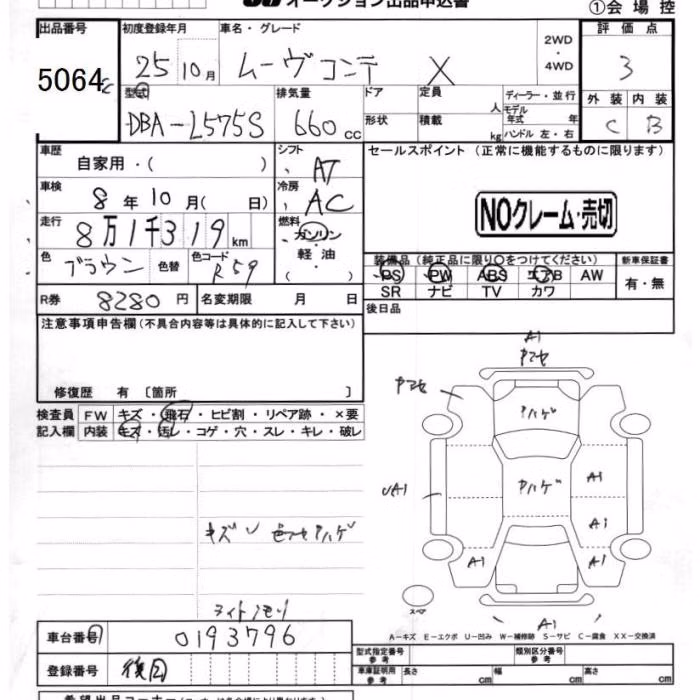 オークション出品申込書
①会場控
出品番号 初度登録年月 車名・グレード 2WD・4WD 評価点
5064 25 10月 ムーヴコンテ X 3
型式 排気量 ドア 定員 人 ディーラー・並行 外装 内装
DBA-L575S 660cc 形状 積載 kg モデル年式 年 ハンドル 左・右 C B
車歴 自家用・( ) シフト AT セールスポイント(正常に機能するものに限ります)
車検 8年10月( 日) 冷房 AC
NOクレーム・売切
走行 8万1千319km 燃料 ガソリン・軽油・( )
色 ブラウン 色替 色コード R59
装備品(純正品に限り○をつけてください) 新車保証書
PS PW ABS エアB AW 有・無
SR ナビ TV カワ
R券 8280円 名変期限 月 日 後日品
注意事項申告欄(不具合内容等は具体的に記入して下さい)
修復歴 有〔箇所 〕
検査員 FW キズ・飛石・ヒビ割・リペア跡・×要
記入欄 内装 キズ・汚レ・コゲ・穴・スレ・キレ・破レ
A1
ヤマセ
ヤマセ
ウハゲ
A1
ウハゲ
A1
A1
A1
A1
キズ
ライトクモリ
スペア
A1
A-キズ E-エクボ U-凹み W-補修跡 S-サビ C-腐食 XX-交換済
車台番号 0193796
型式指定番号 参考 類別区分番号 参考
登録番号 復回
車庫証明用 参考 長さ cm 幅 cm 高さ cm
希望出品コーナー